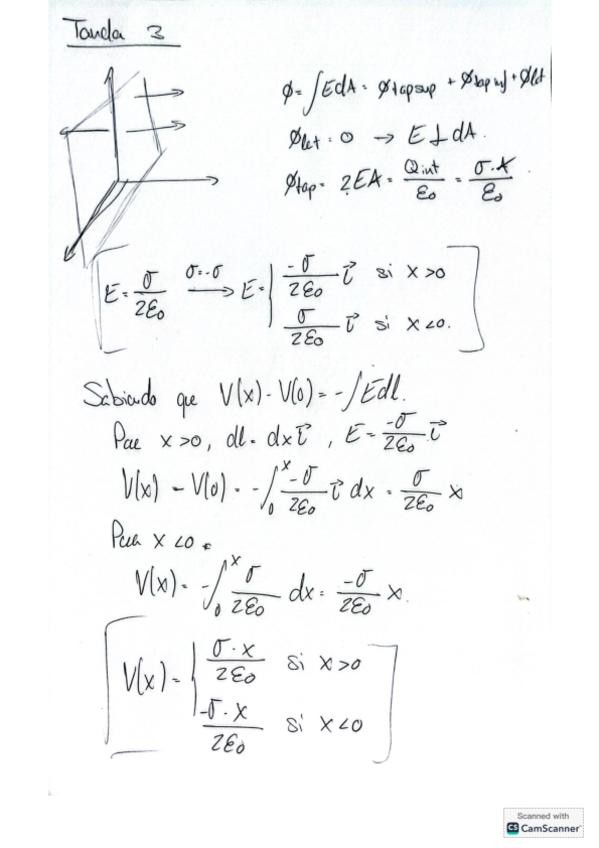 Tanda 3
φ = ∫EdA = φtapsup + φtapinf + φlat
φlat = 0 → E ⊥ dA.
φtap = 2EA = Qint/ε₀ = σ·A/ε₀
E = σ/2ε₀ σ=-σ → E = { -σ/2ε₀ i⃗ si x>0
σ/2ε₀ i⃗ si x<0.
Sabiendo que V(x) - V(0) = -∫Edl.
Para x>0, dl = dx i⃗, E = -σ/2ε₀ i⃗
V(x) - V(0) = -∫₀ˣ -σ/2ε₀ i⃗ dx = σ/2ε₀ x
Para x<0
V(x) = -∫₀ˣ σ/2ε₀ dx = -σ/2ε₀ x.
V(x) = { σ·x/2ε₀ si x>0
-σ·x/2ε₀ si x<0
Scanned with
CS CamScanner